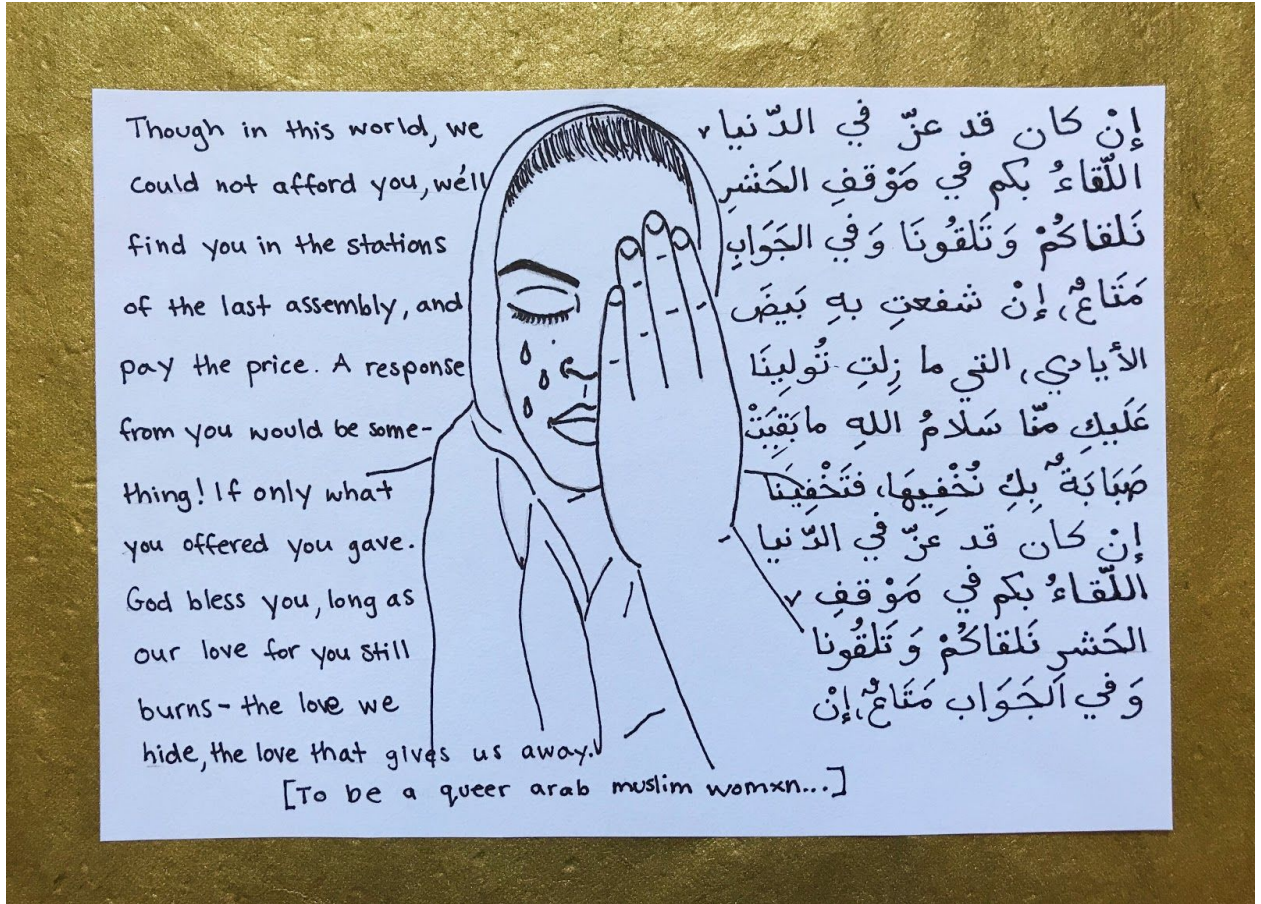 Though in this world, we
could not afford you, we'll
find you in the stations
of the last assembly, and
pay the price. A response
from you would be some-
thing! If only what
you offered you gave.
God bless you, long as
our love for you still
burns - the love we
hide, the love that gives us away.
[To be a queer arab muslim womxn...]
إنْ كان قد عزّ في الدّنيا
اللّقاءُ بكم في مَوْقفِ الحَشرِ
نَلقاكُمْ وَتَلقُونَا وَفي الجَوَابِ
مَتَاعٌ، إنْ شفعتِ بهِ بَيضَ
الأيادي، التي ما زِلتِ تُولِينَا
عَلَيكِ منّا سَلامُ اللهِ ما بَقِيَتْ
صَبَابَةٌ بِكِ نُخْفِيهَا، فتَخْفِينَا
إنْ كان قد عزّ في الدّنيا
اللّقاءُ بكم في مَوْقفِ
الحَشرِ نَلقاكُمْ وَتَلقُونا
وَفي الجَوَاب مَتَاعٌ، إنْ